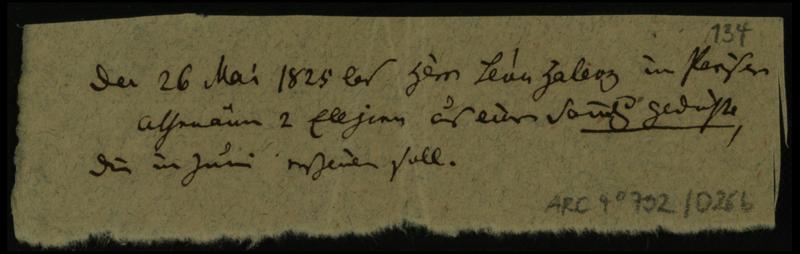 134
Den 26 Mai 1825 las Herr Léon Halevy im Pariser
Athenäum 2 Elegien aus einer Samlg Gedichte,
die im Juni erscheinen soll.
ARC 4° 792 /D26b